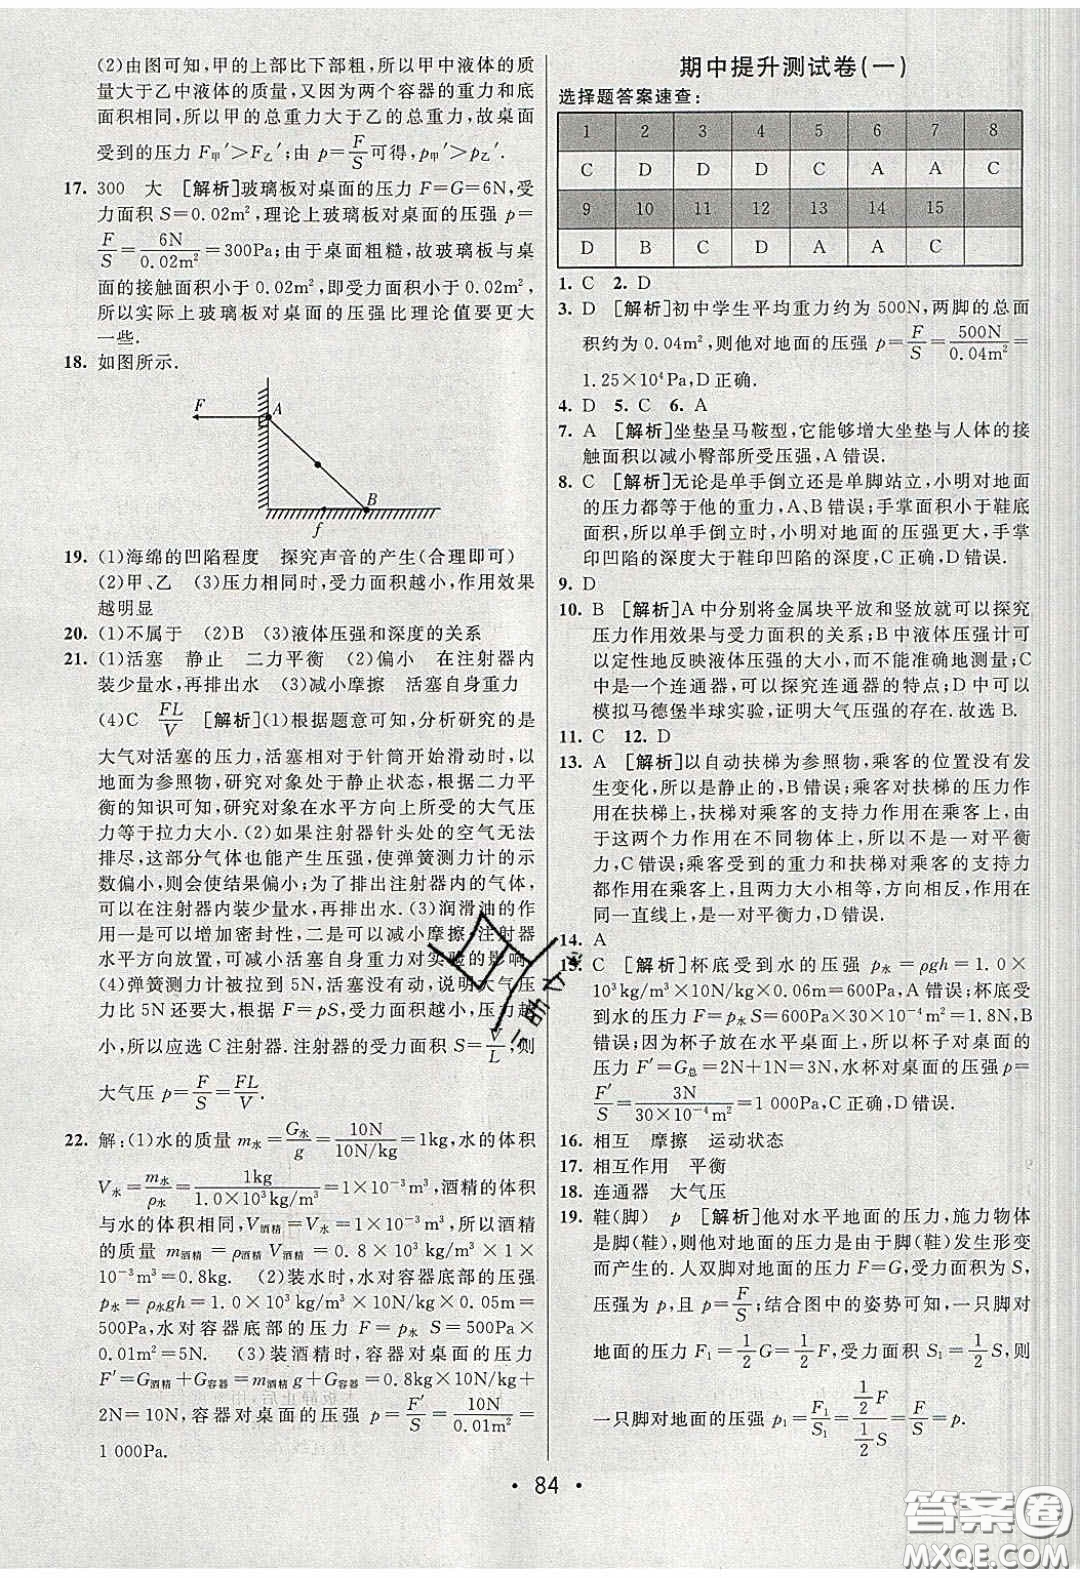 (2)由图可知,甲的上部比下部粗,所以甲中液体的质
量大于乙中液体的质量,又因为两个容器的重力和底
面积相同,所以甲的总重力大于乙的总重力,故桌面
受到的压力 F甲′>F乙′;由 p=F/S 可得,p甲′>p乙′.
17. 300 大 [解析]玻璃板对桌面的压力 F=G=6N,受
力面积 S=0.02m²,理论上玻璃板对桌面的压强 p=
F/S=6N/0.02m²=300Pa;由于桌面粗糙,故玻璃板与桌
面的接触面积小于 0.02m²,即受力面积小于 0.02m²,
所以实际上玻璃板对桌面的压强比理论值要更大
一些.
18. 如图所示.
F A
B
f
19. (1)海绵的凹陷程度 探究声音的产生(合理即可)
(2)甲、乙 (3)压力相同时,受力面积越小,作用效果
越明显
20. (1)不属于 (2)B (3)液体压强和深度的关系
21. (1)活塞 静止 二力平衡 (2)偏小 在注射器内
装少量水,再排出水 (3)减小摩擦 活塞自身重力
(4)C FL/V [解析](1)根据题意可知,分析研究的是
大气对活塞的压力,活塞相对于针筒开始滑动时,以
地面为参照物,研究对象处于静止状态,根据二力平
衡的知识可知,研究对象在水平方向上所受的大气压
力等于拉力大小.(2)如果注射器针头处的空气无法
排尽,这部分气体也能产生压强,使弹簧测力计的示
数偏小,则会使结果偏小;为了排出注射器内的气体,
可以在注射器内装少量水,再排出水.(3)润滑油的
作用一是可以增加密封性,二是可以减小摩擦,注射器
水平方向放置,可减小活塞自身重力对实验的影响.
(4)弹簧测力计被拉到 5N,活塞没有动,说明大气压力
比 5N 还要大.根据 F=pS,受力面积越小,压力越
小,所以应选 C 注射器.注射器的受力面积 S=V/L,则
大气压 p=F/S=FL/V.
22. 解:(1)水的质量 m水=G水/g=10N/10N/kg=1kg,水的体积
V水=m水/ρ水=1kg/1.0×10³kg/m³=1×10⁻³m³,酒精的体积
与水的体积相同,V酒精=V水=1×10⁻³m³,所以酒精
的质量 m酒精=ρ酒精V酒精=0.8×10³kg/m³×1×
10⁻³m³=0.8kg. (2)装水时,水对容器底部的压强
p水=ρ水gh=1.0×10³kg/m³×10N/kg×0.05m=
500Pa,水对容器底部的压力 F=p水 S=500Pa×
0.01m²=5N. (3)装酒精时,容器对桌面的压力
F′=G酒精+G容器=m酒精g+G容器=0.8kg×10N/kg+
2N=10N,容器对桌面的压强 p=F′/S=10N/0.01m²=
1 000Pa.
期中提升测试卷(一)
选择题答案速查:
1 2 3 4 5 6 7 8
C D D D C A A C
9 10 11 12 13 14 15
D B C D A A C
1. C 2. D
3. D [解析]初中学生平均重力约为 500N,两脚的总面
积约为 0.04m²,则他对地面的压强 p=F/S=500N/0.04m²=
1.25×10⁴Pa,D 正确.
4. D 5. C 6. A
7. A [解析]坐垫呈马鞍型,它能够增大坐垫与人体的接
触面积以减小臀部所受压强,A 错误.
8. C [解析]无论是单手倒立还是单脚站立,小明对地面
的压力都等于他的重力,A、B 错误;手掌面积小于鞋底
面积,所以单手倒立时,小明对地面的压强更大,手掌
印凹陷的深度大于鞋印凹陷的深度,C 正确,D 错误.
9. D
10. B [解析]A 中分别将金属块平放和竖放就可以探究
压力作用效果与受力面积的关系;B 中液体压强计可
以定性地反映液体压强的大小,而不能准确地测量;C
中是一个连通器,可以探究连通器的特点;D 中可以
模拟马德堡半球实验,证明大气压强的存在.故选 B.
11. C 12. D
13. A [解析]以自动扶梯为参照物,乘客的位置没有发
生变化,所以是静止的,A 正确;乘客对扶梯的压力作
用在扶梯上,扶梯对乘客的支持力作用在乘客上,由
于这两个力作用在不同物体上,所以不是一对平衡
力,C 错误;乘客受到的重力和扶梯对乘客的支持力
都作用在乘客上,且两力大小相等,方向相反,作用在
同一直线上,是一对平衡力,D 错误.
14. A
15. C [解析]杯底受到水的压强 p水=ρgh=1.0×
10³kg/m³×10N/kg×0.06m=600Pa,A 错误;杯底受
到水的压力 F=p水S=600Pa×30×10⁻⁴m²=1.8N,B
错误;因为杯子放在水平桌面上,所以杯子对桌面的
压力 F′=G总=2N+1N=3N,水杯对桌面的压强 p=
F′/S=3N/30×10⁻⁴m²=1 000Pa,C 正确,D 错误.
16. 相互 摩擦 运动状态
17. 相互作用 平衡
18. 连通器 大气压
19. 鞋(脚) p [解析]他对水平地面的压力,施力物体
是脚(鞋),则他对地面的压力是由于脚(鞋)发生形变
而产生的.人双脚对地面的压力 F=G,受力面积为 S,
压强为 p,且 p=F/S;结合图中的姿势可知,一只脚对
地面的压力 F₁=1/2G=1/2F,受力面积 S₁=1/2S,则
一只脚对地面的压强 p₁=F₁/S₁=1/2F/1/2S=F/S=p.
• 84 •
答案圈
MXQE.COM